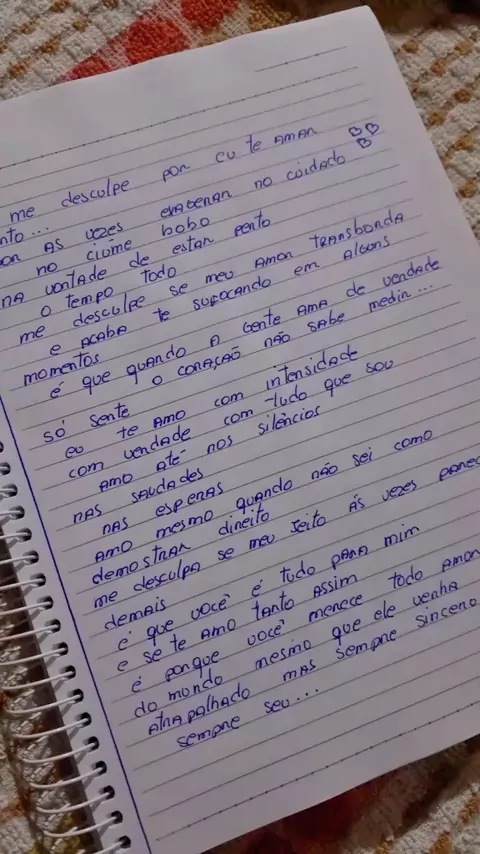 me desculpe por eu te amar
nto...
por as vezes exagerar no cuidado
no ciúme bobo
na vontade de estar perto
o tempo todo
me desculpe se meu amor transborda
e acaba te sufocando em alguns
momentos
é que quando a gente ama de verdade
só sente o coração não sabe medir...
eu te amo com intensidade
com verdade com tudo que sou
amo até nos silêncios
nas saudades
nas esperas
amo mesmo quando não sei como
demostrar direito
me desculpa se meu jeito ás vezes parece
demais
é que você é tudo para mim
e se te amo tanto assim
é porque você merece todo amor
do mundo mesmo que ele venha
atrapalhado mas sempre sincero
sempre seu...